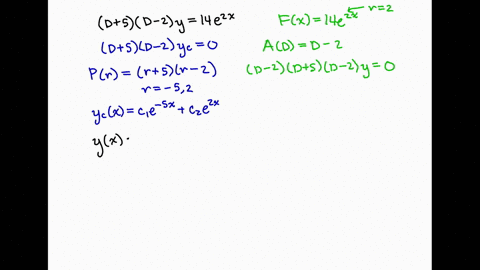 (D+5)(D-2)y = 14e^{2x}
(D+5)(D-2)y_c = 0
P(r) = (r+5)(r-2)
r = -5, 2
y_c(x) = c_1e^{-5x} + c_2e^{2x}
y(x) -
F(x) = 14e^{2x} ← r=2
A(D) = D - 2
(D-2)(D+5)(D-2)y = 0